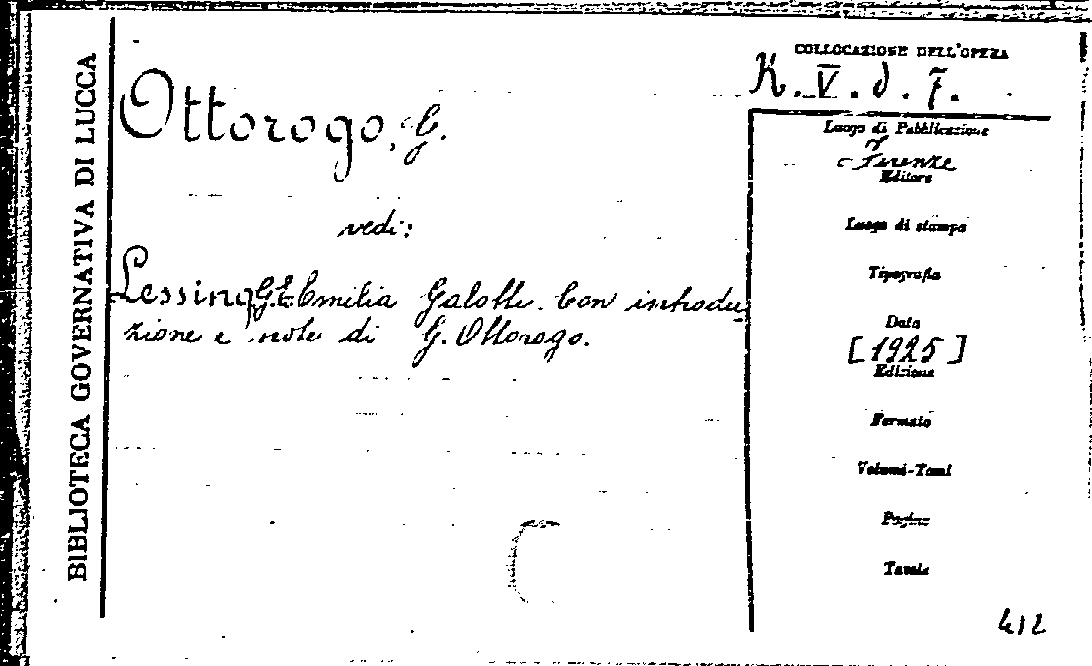 BIBLIOTECA GOVERNATIVA DI LUCCA
Ottorogo, G.
vedi:
Lessing, G.E. Emilia Galotti. Con introdu-
zione e note di G. Ottorogo.
COLLOCAZIONE DELL'OPERA
K. V. d. 7.
Luogo di Pubblicazione
Firenze
Editore
Luogo di stampa
Tipografia
Data
[1925]
Edizione
Formato
Volumi-Tomi
Pagine
Tavole
412